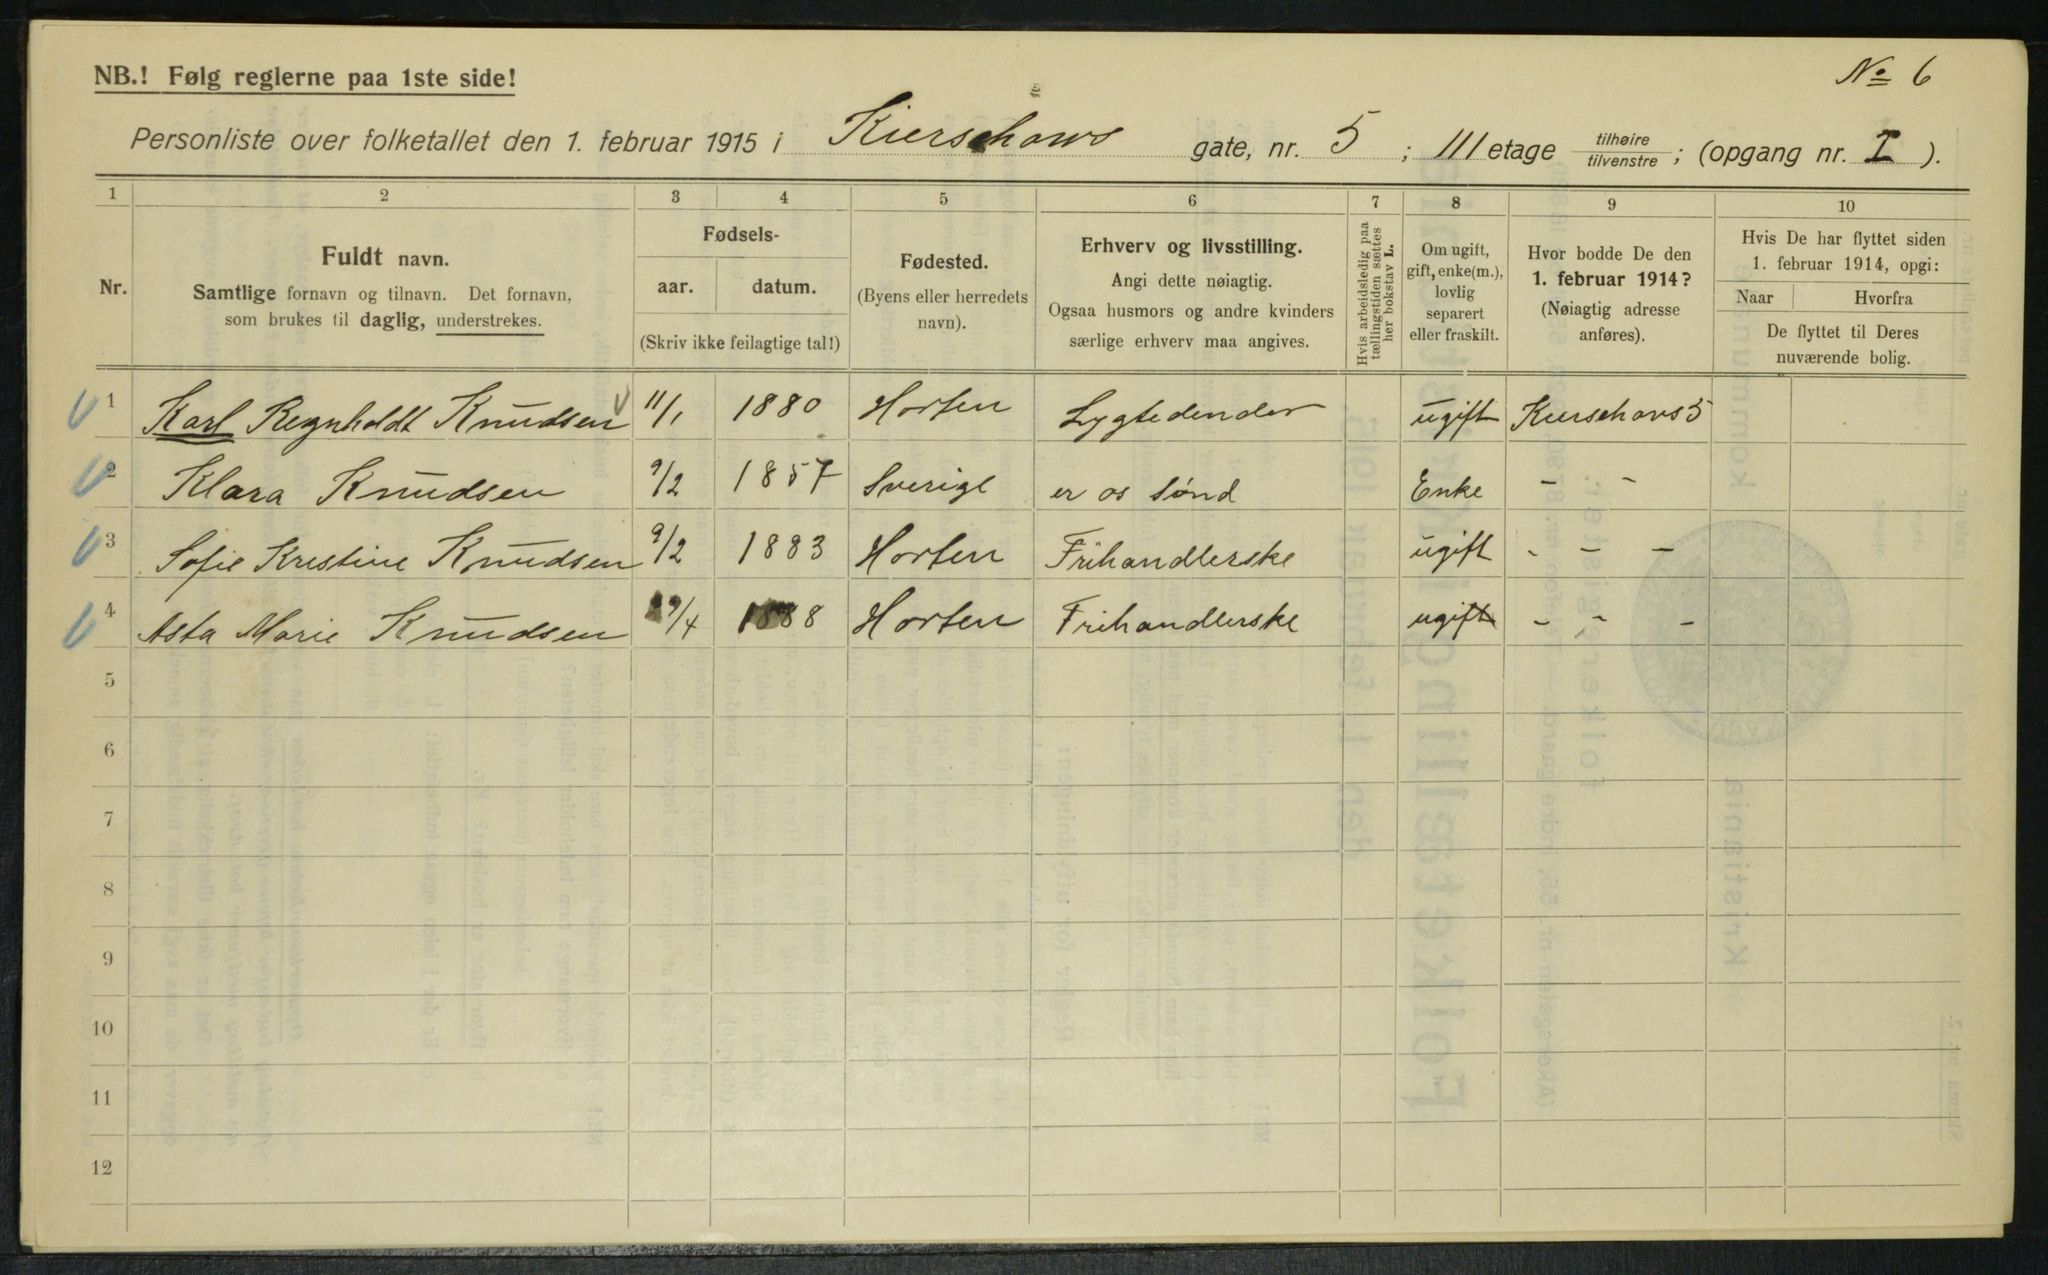 No 6
NB.! Følg reglerne paa 1ste side!
Personliste over folketallet den 1. februar 1915 i Kierschows gate, nr. 5 ; III etage tilhøire tilvenstre ; (opgang nr. I ).
1 2 3 4 5 6 7 8 9 10
Nr.
Fuldt navn.
Samtlige fornavn og tilnavn. Det fornavn,
som brukes til daglig, understrekes.
Fødsels-
aar. datum.
(Skriv ikke feilagtige tal!)
Fødested.
(Byens eller herredets
navn).
Erhverv og livsstilling.
Angi dette nøiagtig.
Ogsaa husmors og andre kvinders
særlige erhverv maa angives.
Hvis arbeidsledig paa
tællingstiden sættes
her bokstav L.
Om ugift,
gift, enke(m.),
lovlig
separert
eller fraskilt.
Hvor bodde De den
1. februar 1914?
(Nøiagtig adresse
anføres).
Hvis De har flyttet siden
1. februar 1914, opgi:
Naar Hvorfra
De flyttet til Deres
nuværende bolig.
1 Karl Regnholdt Knudsen 11/1 1880 Horten Lygtedender ugift Kierschows 5
2 Klara Knudsen 9/2 1857 Sverige er os sønd Enke - -
3 Sofie Kristine Knudsen 9/2 1883 Horten Frihandlerske ugift - - -
4 Asta Marie Knudsen 29/4 1888 Horten Frihandlerske ugift - - -
5
6
7
8
9
10
11
12